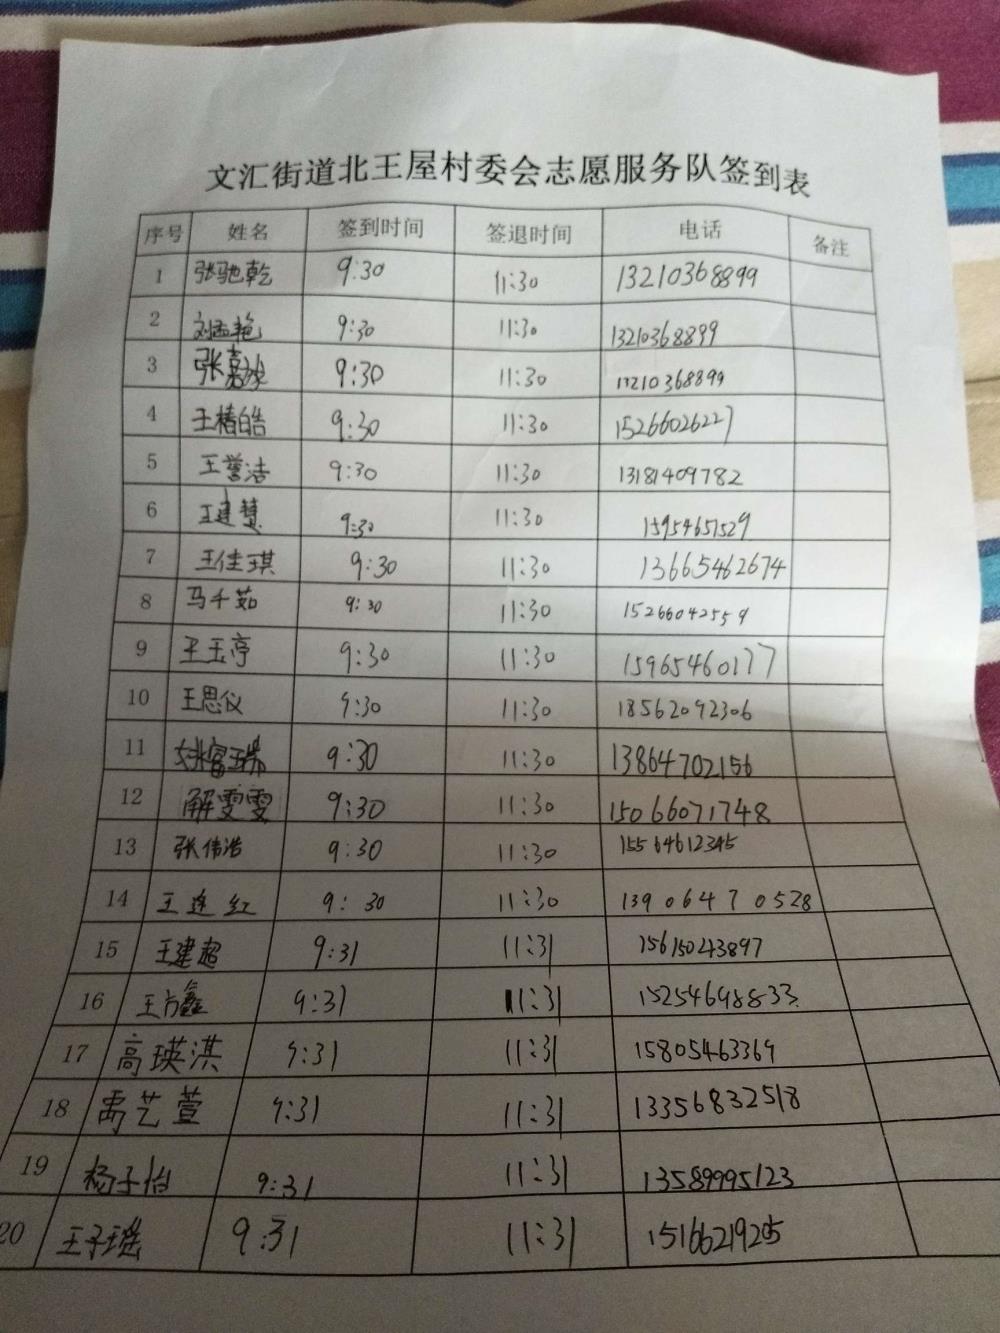 文汇街道北王屋村委会志愿服务队签到表
序号 姓名 签到时间 签退时间 电话 备注
1 张驰乾 9:30 11:30 13210368899
2 刘孟艳 9:30 11:30 13210368899
3 张嘉 9:30 11:30 13210368899
4 王椿皓 9:30 11:30 15266026227
5 王誉洁 9:30 11:30 13181409782
6 王建慧 9:30 11:30 15954651529
7 王佳琪 9:30 11:30 13665462674
8 马千茹 9:30 11:30 15266042559
9 王玉亭 9:30 11:30 15965460177
10 王思仪 9:30 11:30 18562092306
11 9:30 11:30 13864702156
12 解雯雯 9:30 11:30 15066071748
13 张伟浩 9:30 11:30 15564612345
14 王连红 9:30 11:30 13906470528
15 王建超 9:31 11:31 15615043897
16 王方鑫 9:31 11:31 15254698833
17 高瑛淇 9:31 11:31 15805463369
18 禹艺萱 9:31 11:31 13356832518
19 杨子怡 9:31 11:31 13589995123
20 王子瑶 9:31 11:31 15166219205